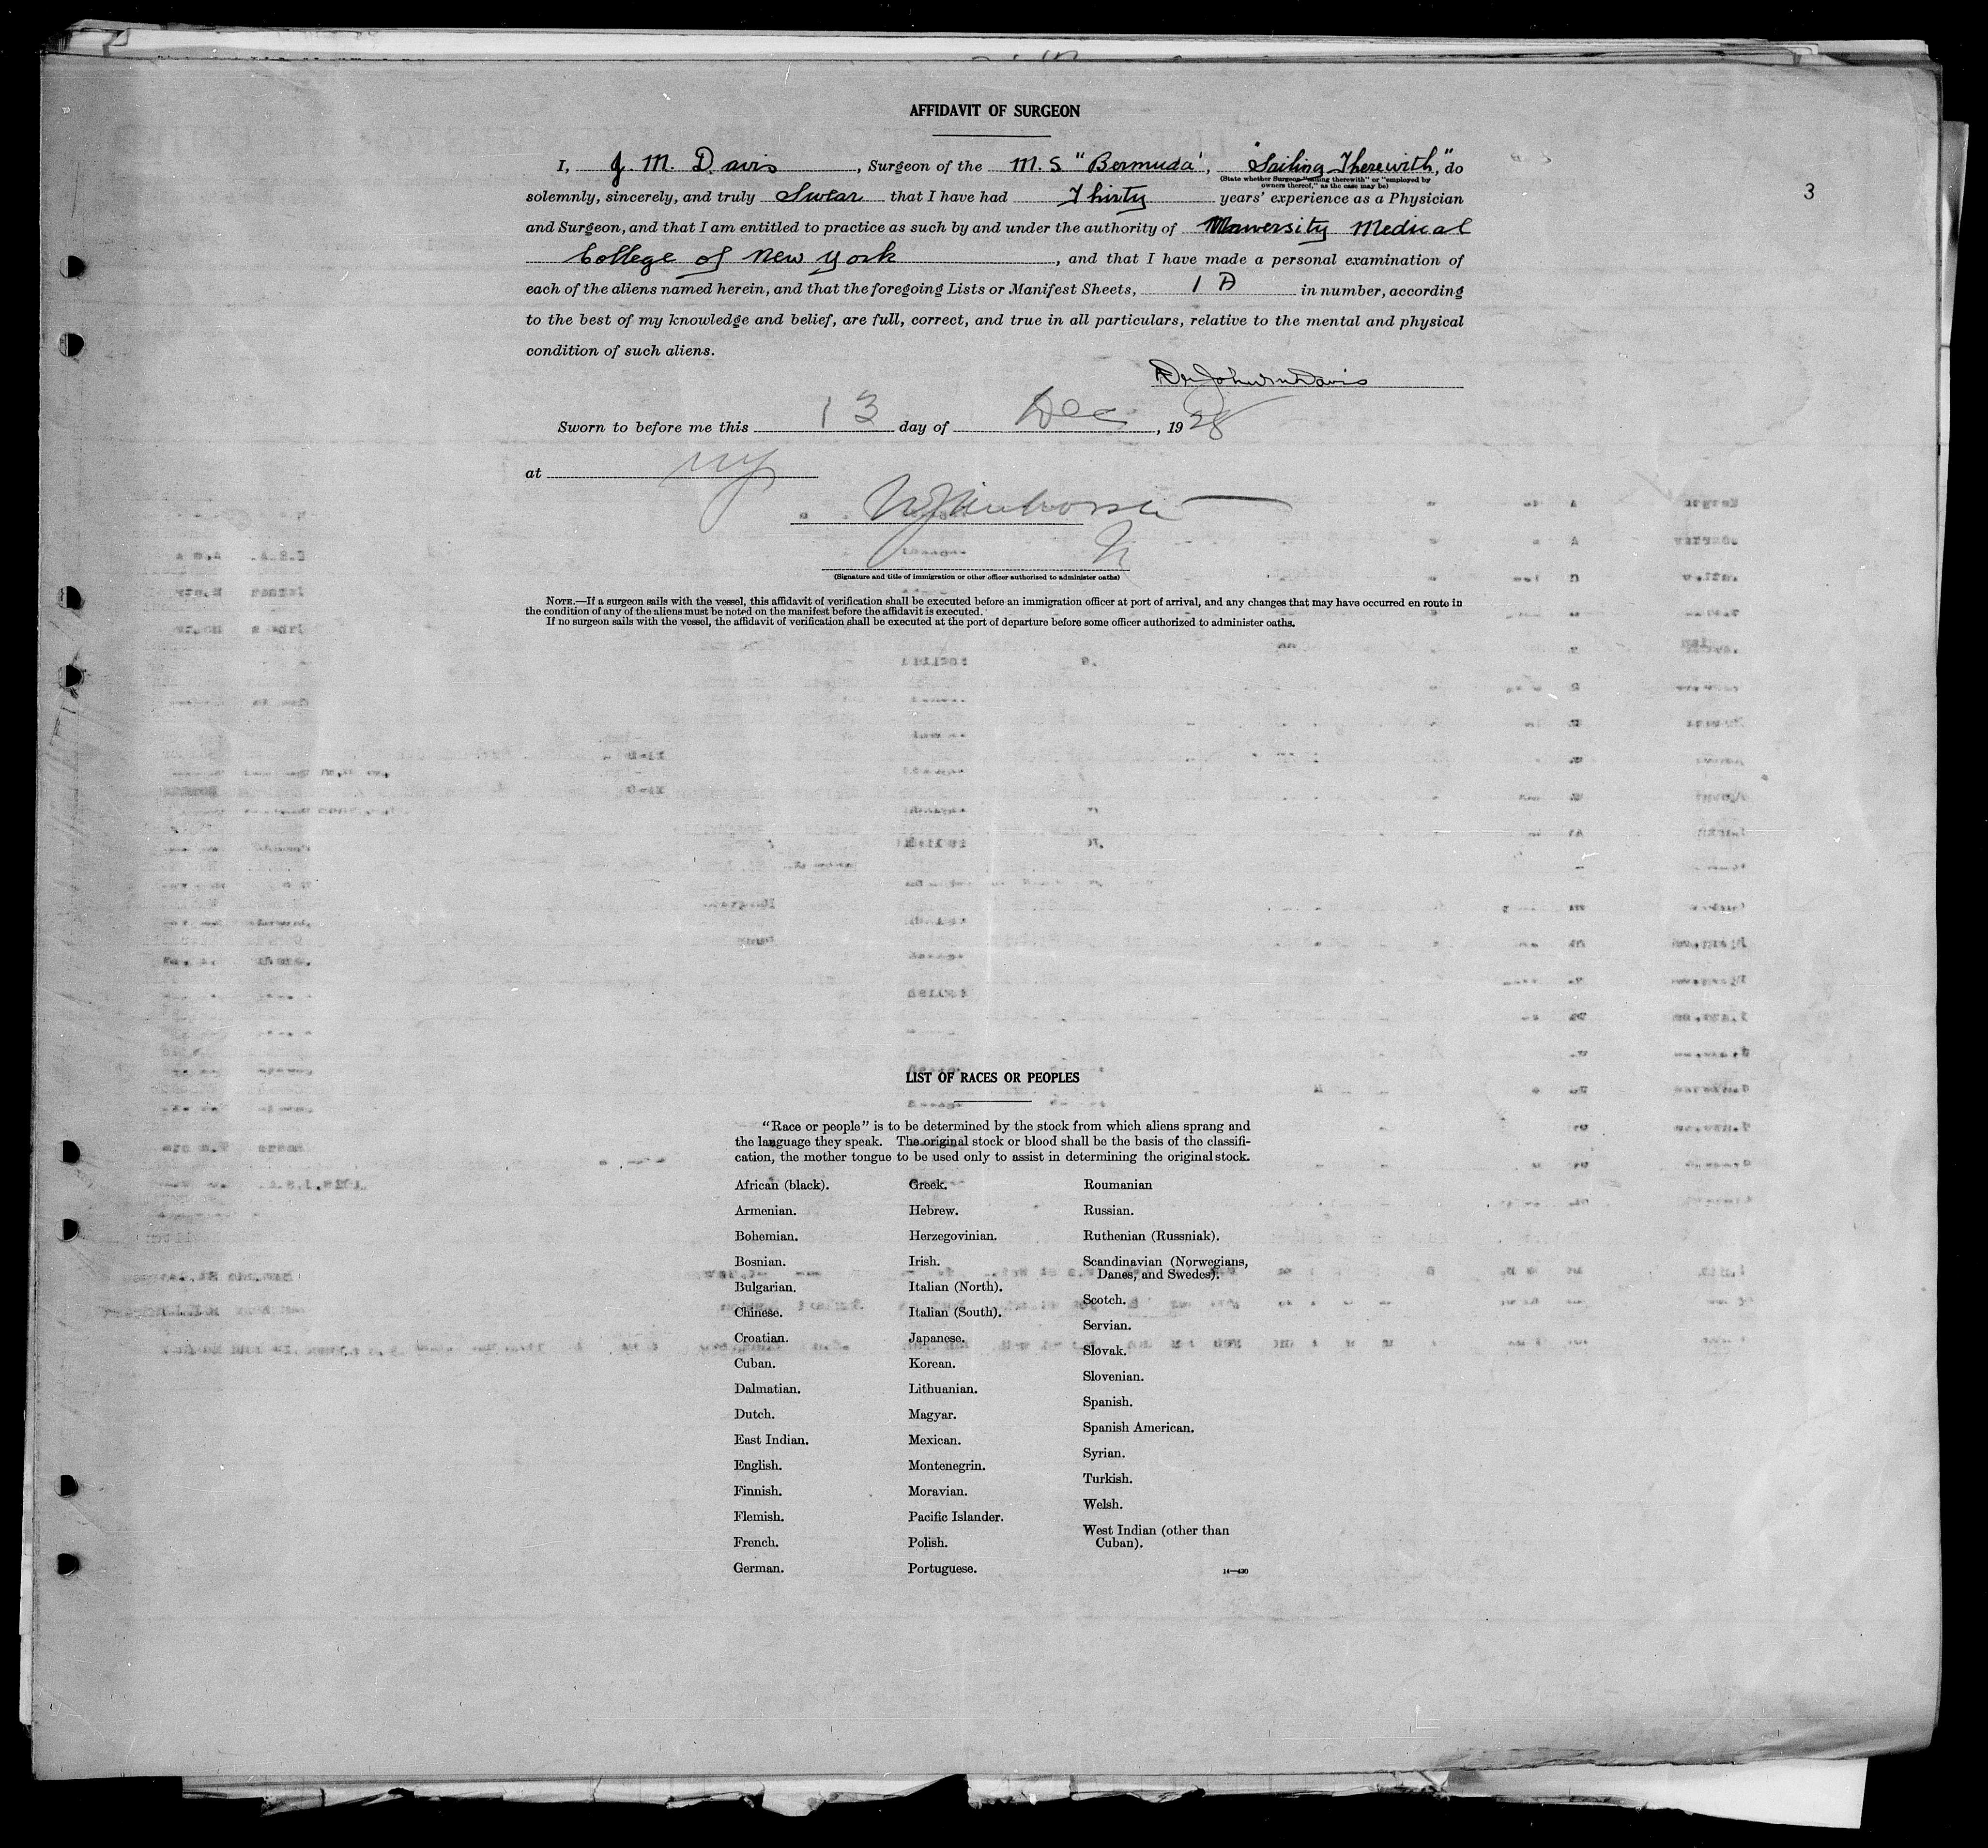 AFFIDAVIT OF SURGEON
I, J. M. Davis, Surgeon of the M.S "Bermuda", "Sailing Therewith," do
(State whether Surgeon "sailing therewith" or "employed by
owners thereof," as the case may be)
3
solemnly, sincerely, and truly Swear that I have had Thirty years' experience as a Physician
and Surgeon, and that I am entitled to practice as such by and under the authority of University Medical
College of New York, and that I have made a personal examination of
each of the aliens named herein, and that the foregoing Lists or Manifest Sheets, 1 A in number, according
to the best of my knowledge and belief, are full, correct, and true in all particulars, relative to the mental and physical
condition of such aliens.
Dr John M Davis
Sworn to before me this 13 day of Dec, 1928
at NY
(Signature and title of immigration or other officer authorized to administer oaths)
NOTE.—If a surgeon sails with the vessel, this affidavit of verification shall be executed before an immigration officer at port of arrival, and any changes that may have occurred en route in
the condition of any of the aliens must be noted on the manifest before the affidavit is executed.
If no surgeon sails with the vessel, the affidavit of verification shall be executed at the port of departure before some officer authorized to administer oaths.
LIST OF RACES OR PEOPLES
"Race or people" is to be determined by the stock from which aliens sprang and
the language they speak. The original stock or blood shall be the basis of the classifi-
cation, the mother tongue to be used only to assist in determining the original stock.
African (black).
Armenian.
Bohemian.
Bosnian.
Bulgarian.
Chinese.
Croatian.
Cuban.
Dalmatian.
Dutch.
East Indian.
English.
Finnish.
Flemish.
French.
German.
Greek.
Hebrew.
Herzegovinian.
Irish.
Italian (North).
Italian (South).
Japanese.
Korean.
Lithuanian.
Magyar.
Mexican.
Montenegrin.
Moravian.
Pacific Islander.
Polish.
Portuguese.
Roumanian
Russian.
Ruthenian (Russniak).
Scandinavian (Norwegians,
Danes, and Swedes).
Scotch.
Servian.
Slovak.
Slovenian.
Spanish.
Spanish American.
Syrian.
Turkish.
Welsh.
West Indian (other than
Cuban).
14—430